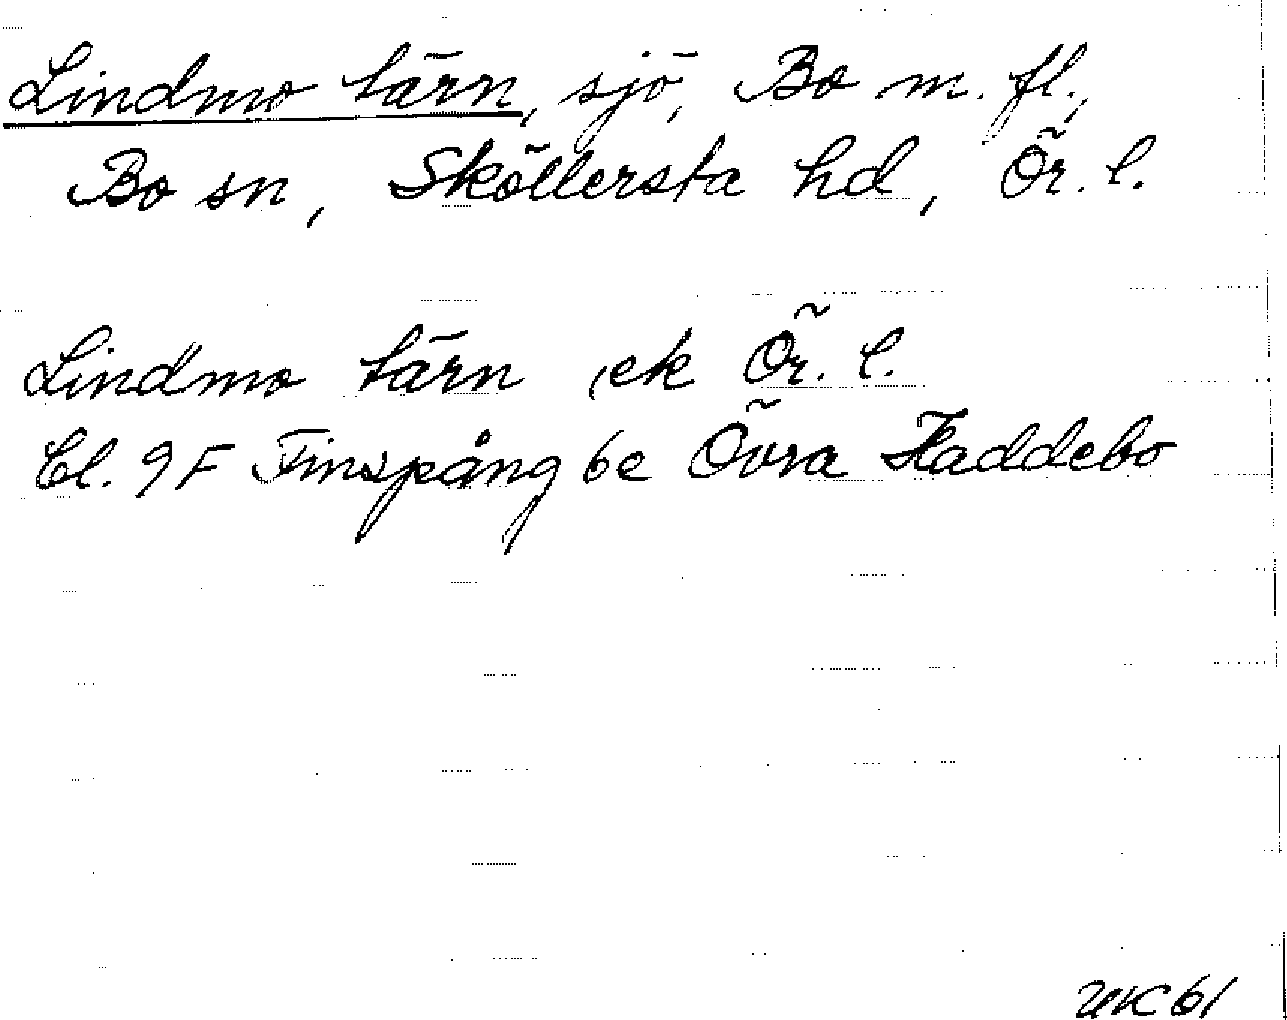 Lindmo tärn, sjö, Bo m. fl.,
Bo sn, Sköllersta hd, Ör. l.
Lindmo tärn ek Ör. l.
Bl. 9F Finspång 6e Övra Haddebo
UK 61